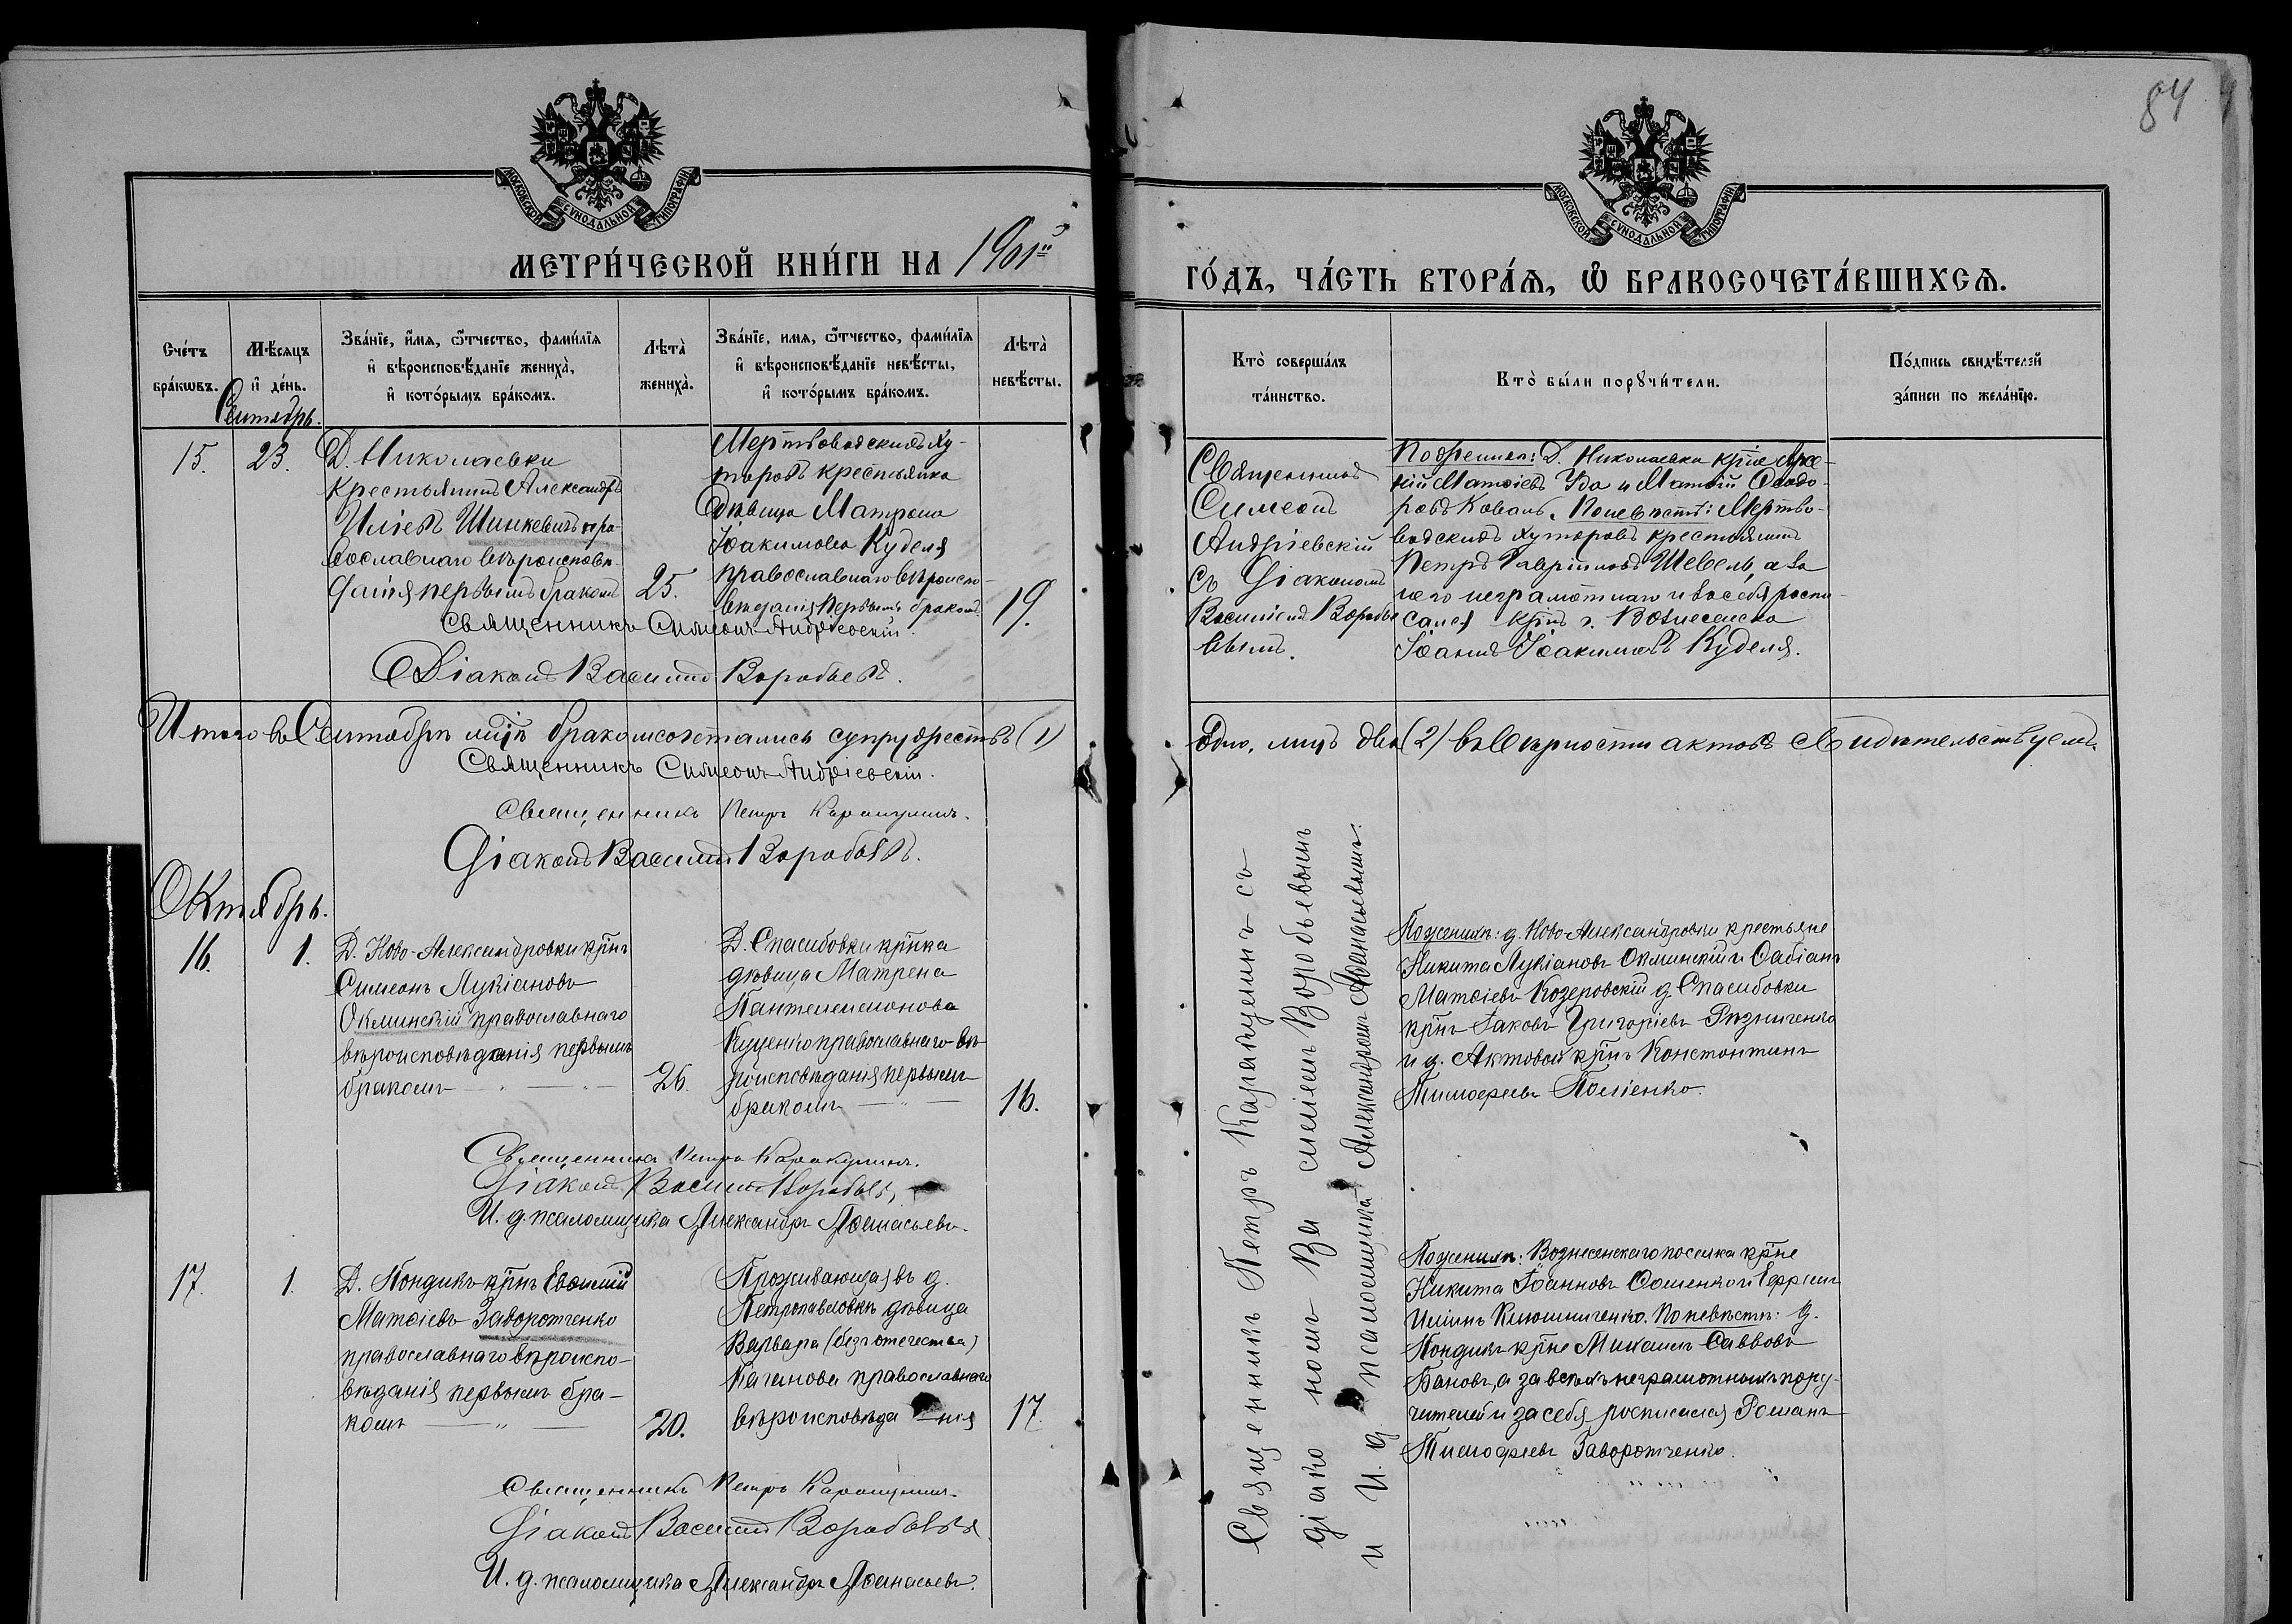 84
МОСКОВСКОЙ СѴНОДАЛЬНОЙ ТИПОГРАФІИ
МОСКОВСКОЙ СѴНОДАЛЬНОЙ ТИПОГРАФІИ
МЕТРИ́ЧЕСКОЙ КНИ́ГИ НА 1901й
ГО́ДЪ, ЧА́СТЬ ВТОРА́Я, Ѡ БРАКОСОЧЕТА́ВШИХСЯ.
Сче́тъ
бра́кѡвъ.
Мѣ́сяцъ
и҆ де́нь.
Зва́нїе, и҆́мя, ѻ҆́тчество, фами́лїя
и҆ вѣроисповѣ́данїе жениха̀,
и҆ кото́рымъ бра́комъ.
Лѣта̀
жениха̀.
Зва́нїе, имя, ѻ҆́тчество, фами́лїя
и҆ вѣроисповѣ́данїе невѣ́сты,
и҆ кото́рымъ бра́комъ.
Лѣта̀
невѣ́сты.
Кто̀ соверша́лъ
та́инство.
Кто̀ бы́ли порꙋчи́тели.
По́дпись свидѣ́телей
за́писи по жела́нїю.
Сентябрь.
15.
23.
Д. Николаевки
крестьянинъ Александръ
Иліевъ Шинкевичъ пра-
вославнаго вѣроисповѣ-
данія первымъ бракомъ
25.
Мертвоводскихъ Ху-
торовъ крестьянка
дѣвица Матрона
Іоакимова Куделя
православнаго вѣроиспо-
вѣданія первымъ бракомъ.
19.
Священникъ
Симеонъ
Андріевскій
съ Діакономъ
Василіемъ Воробье
вымъ.
По женихѣ: Д. Николаевки кр̃не
Матѳіевъ и Матѳій Ѳеодо-
ровъ Коваль. По невѣстѣ: Мертво-
водскихъ хуторовъ крестьянинъ
Петръ Гавріиловъ Шевель, а за
него неграмотнаго и за себя роспи-
сался кр̃нъ г. Вознесенска
Іоаннъ Іоакимовъ Куделя.
Священникъ Симеонъ Андріевскій.
Діаконъ Василій Воробьевъ.
Итого въ Сентябрѣ мц̃ѣ бракомъ сочетались супружествъ (1)
одно, лицъ два (2) въ вѣрности актовъ свидѣтельствуемъ.
Священникъ Симеонъ Андріевскій.
Священникъ Петръ Каракулинъ.
Діаконъ Василій Воробьевъ.
Октябрь.
16.
1.
Д. Ново-Александровки кр̃нъ
Симеонъ Лукіановъ
Окминскій православнаго
вѣроисповѣданія первымъ
бракомъ
26.
Д. Спасибовки кр̃нка
дѣвица Матрена
Пантелеимонова
Куценко православнаго вѣ-
роисповѣданія первымъ
бракомъ
16.
Священникъ Петръ Каракулинъ съ
діакономъ Василіемъ Воробьевымъ
и И. д. псаломщика Александромъ Аѳанасьевымъ.
По женихѣ: д. Ново-Александровки крестьяне
Никита Лукіановъ Окминскій и Фабіанъ
Матѳіевъ Козеровскій д. Спасибовки
кр̃нъ Іаковъ Григоріевъ Рѣзниченко
и д. Актовой кр̃нъ Константинъ
Тимофеевъ Поліенко.
Священникъ Петръ Каракулинъ.
Діаконъ Василій Воробьевъ,
И. д. псаломщика Александръ Аѳанасьевъ.
17.
1.
Д. Кондикъ кр̃нъ Евѳимій
Матѳіевъ Заворотченко
православнаго вѣроиспо-
вѣданія первымъ бра-
комъ
20.
Проживающая въ д.
Петропавловкѣ дѣвица
Варвара (безъ отечества)
Каганова православнаго
вѣроисповѣда-нія
17.
По женихѣ: Вознесенскаго поселка кр̃не
Никита Іоанновъ Фоменко и Ефремъ
Ключниченко. По невѣстѣ: д.
Кондикъ кр̃не Михаилъ Саввовъ
Бановъ, а за всѣхъ неграмотныхъ пору-
чителей и за себя росписался Романъ
Тимофеевъ Заворотченко.
Священникъ Петръ Каракулинъ.
Діаконъ Василій Воробьевъ
И. д. псаломщика Александръ Аѳанасьевъ.